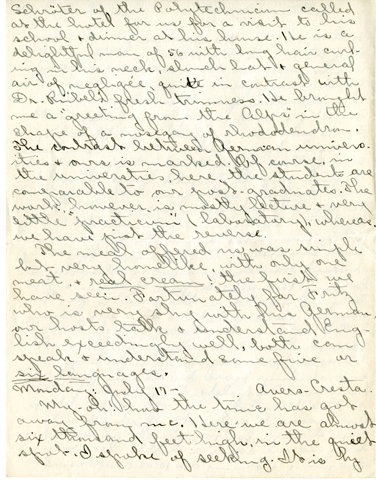 Schröter of the Polytechnicum called
at the hotel for us for a visit to his
school & dinner at his house. He is a
delightful man of 56 with long hair curl-
ing in his neck, slouch hat & general
air of negligée quite in contrast with
Dr. fresh trimness. He brought
me a "greeting from the Alps" in the
shape of a nosegay of rhododendron.
The contrast between German univers-
ities & ours is marked. Of course, in
the universities here the students are
comparable to our post-graduates. The
work however is mostly lecture & very
little "practicum" (laboratory), whereas
we have just the reverse.
The meal offered us was simple
but very homelike with only one
meat, & real cream, the first we
have seen. Fortunately for Fritz
who is very shy with his German
our hosts talk & understand Eng-
lish exceedingly well, both can
speak & understand some five or
six languages.
Monday, July 17- Avers-Cresta.
My, oh! how the time has got
away from me. Here we are almost
six thousand feet high, in the quiet
spot I spoke of seeking. It is by